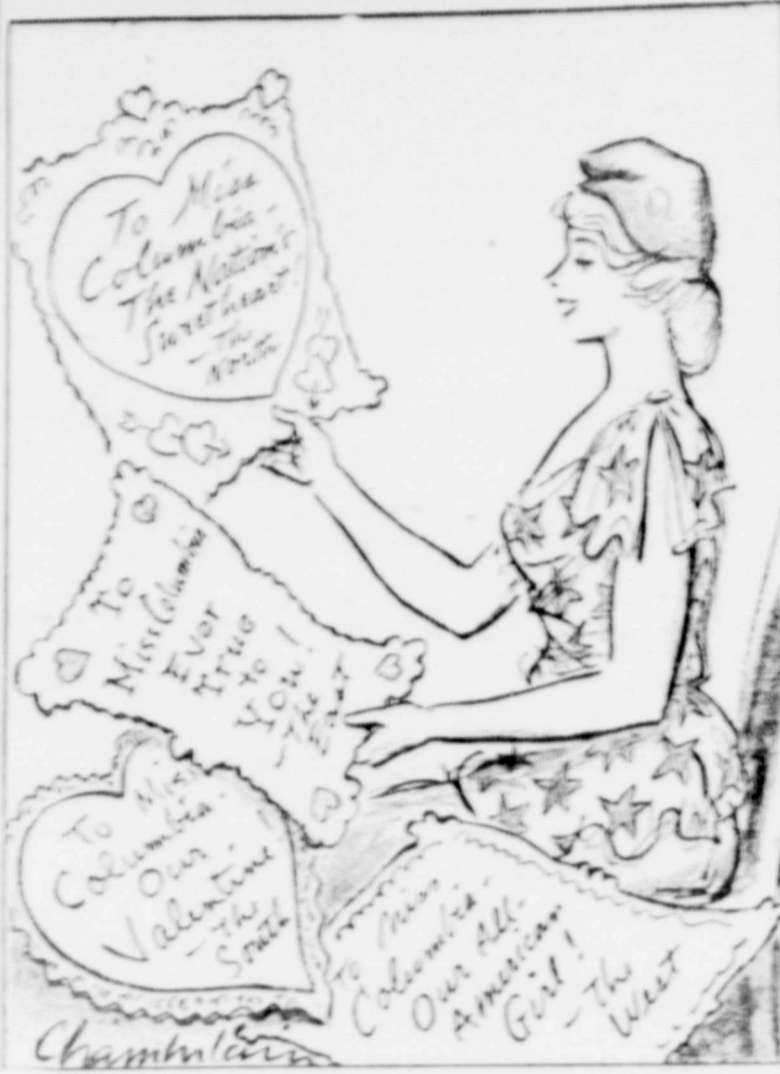 To Miss
Columbia -
The Nation's
Sweetheart!
- The
North
To
Miss Columbia
Ever
True
to
You!
- The
East
To Miss
Columbia -
Our
Valentine!
- The
South
To Miss
Columbia -
Our All-
American
Girl!
- The
West
Chamberlain